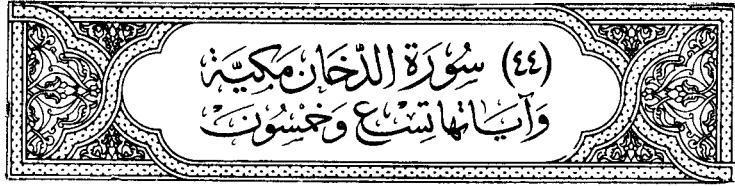 (٤٤) سُورَةِ الدُّخَانِ مَكِيَّة
وَآيَاتهَا تِسْع وَخَمْسُونَ